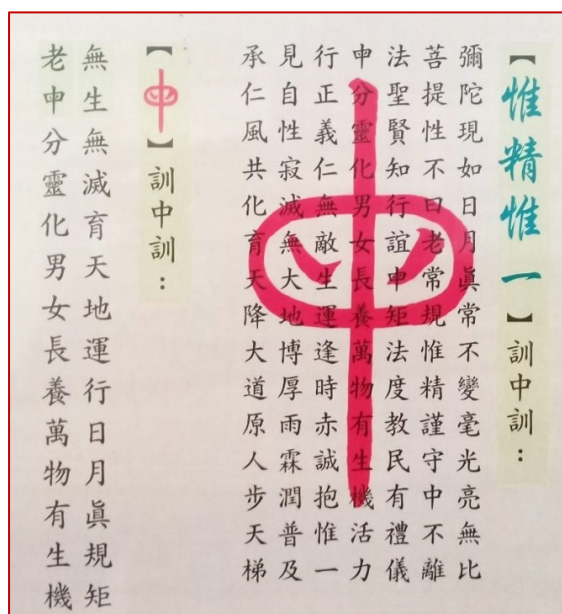 【惟精惟一】訓中訓：
彌陀現如日月眞常不變毫光亮無比
菩提性不曰老常規惟精謹守中不離
法聖賢知行誼申矩法度教民有禮儀
申分靈化男女長養萬物有生機活力
行正義仁無敵生運逢時赤誠抱惟一
見自性寂滅無大地博厚雨霖潤普及
承仁風共化育天降大道原人步天梯
【】訓中訓：
無生無滅育天地運行日月眞規矩
老申分靈化男女長養萬物有生機